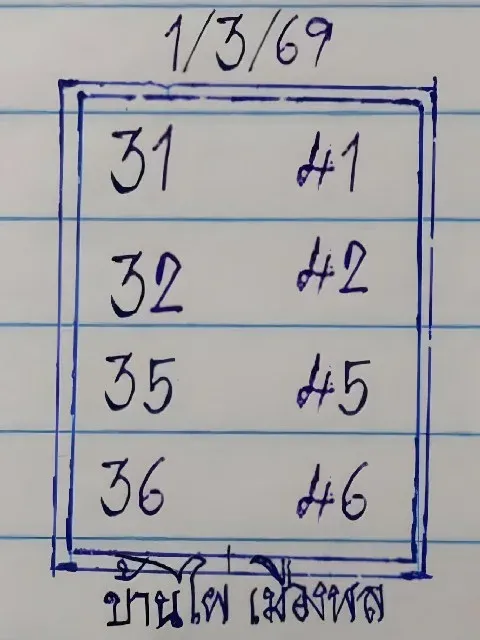 1/3/69
31 41
32 42
35 45
36 46
บ้านไผ่ เมืองพล